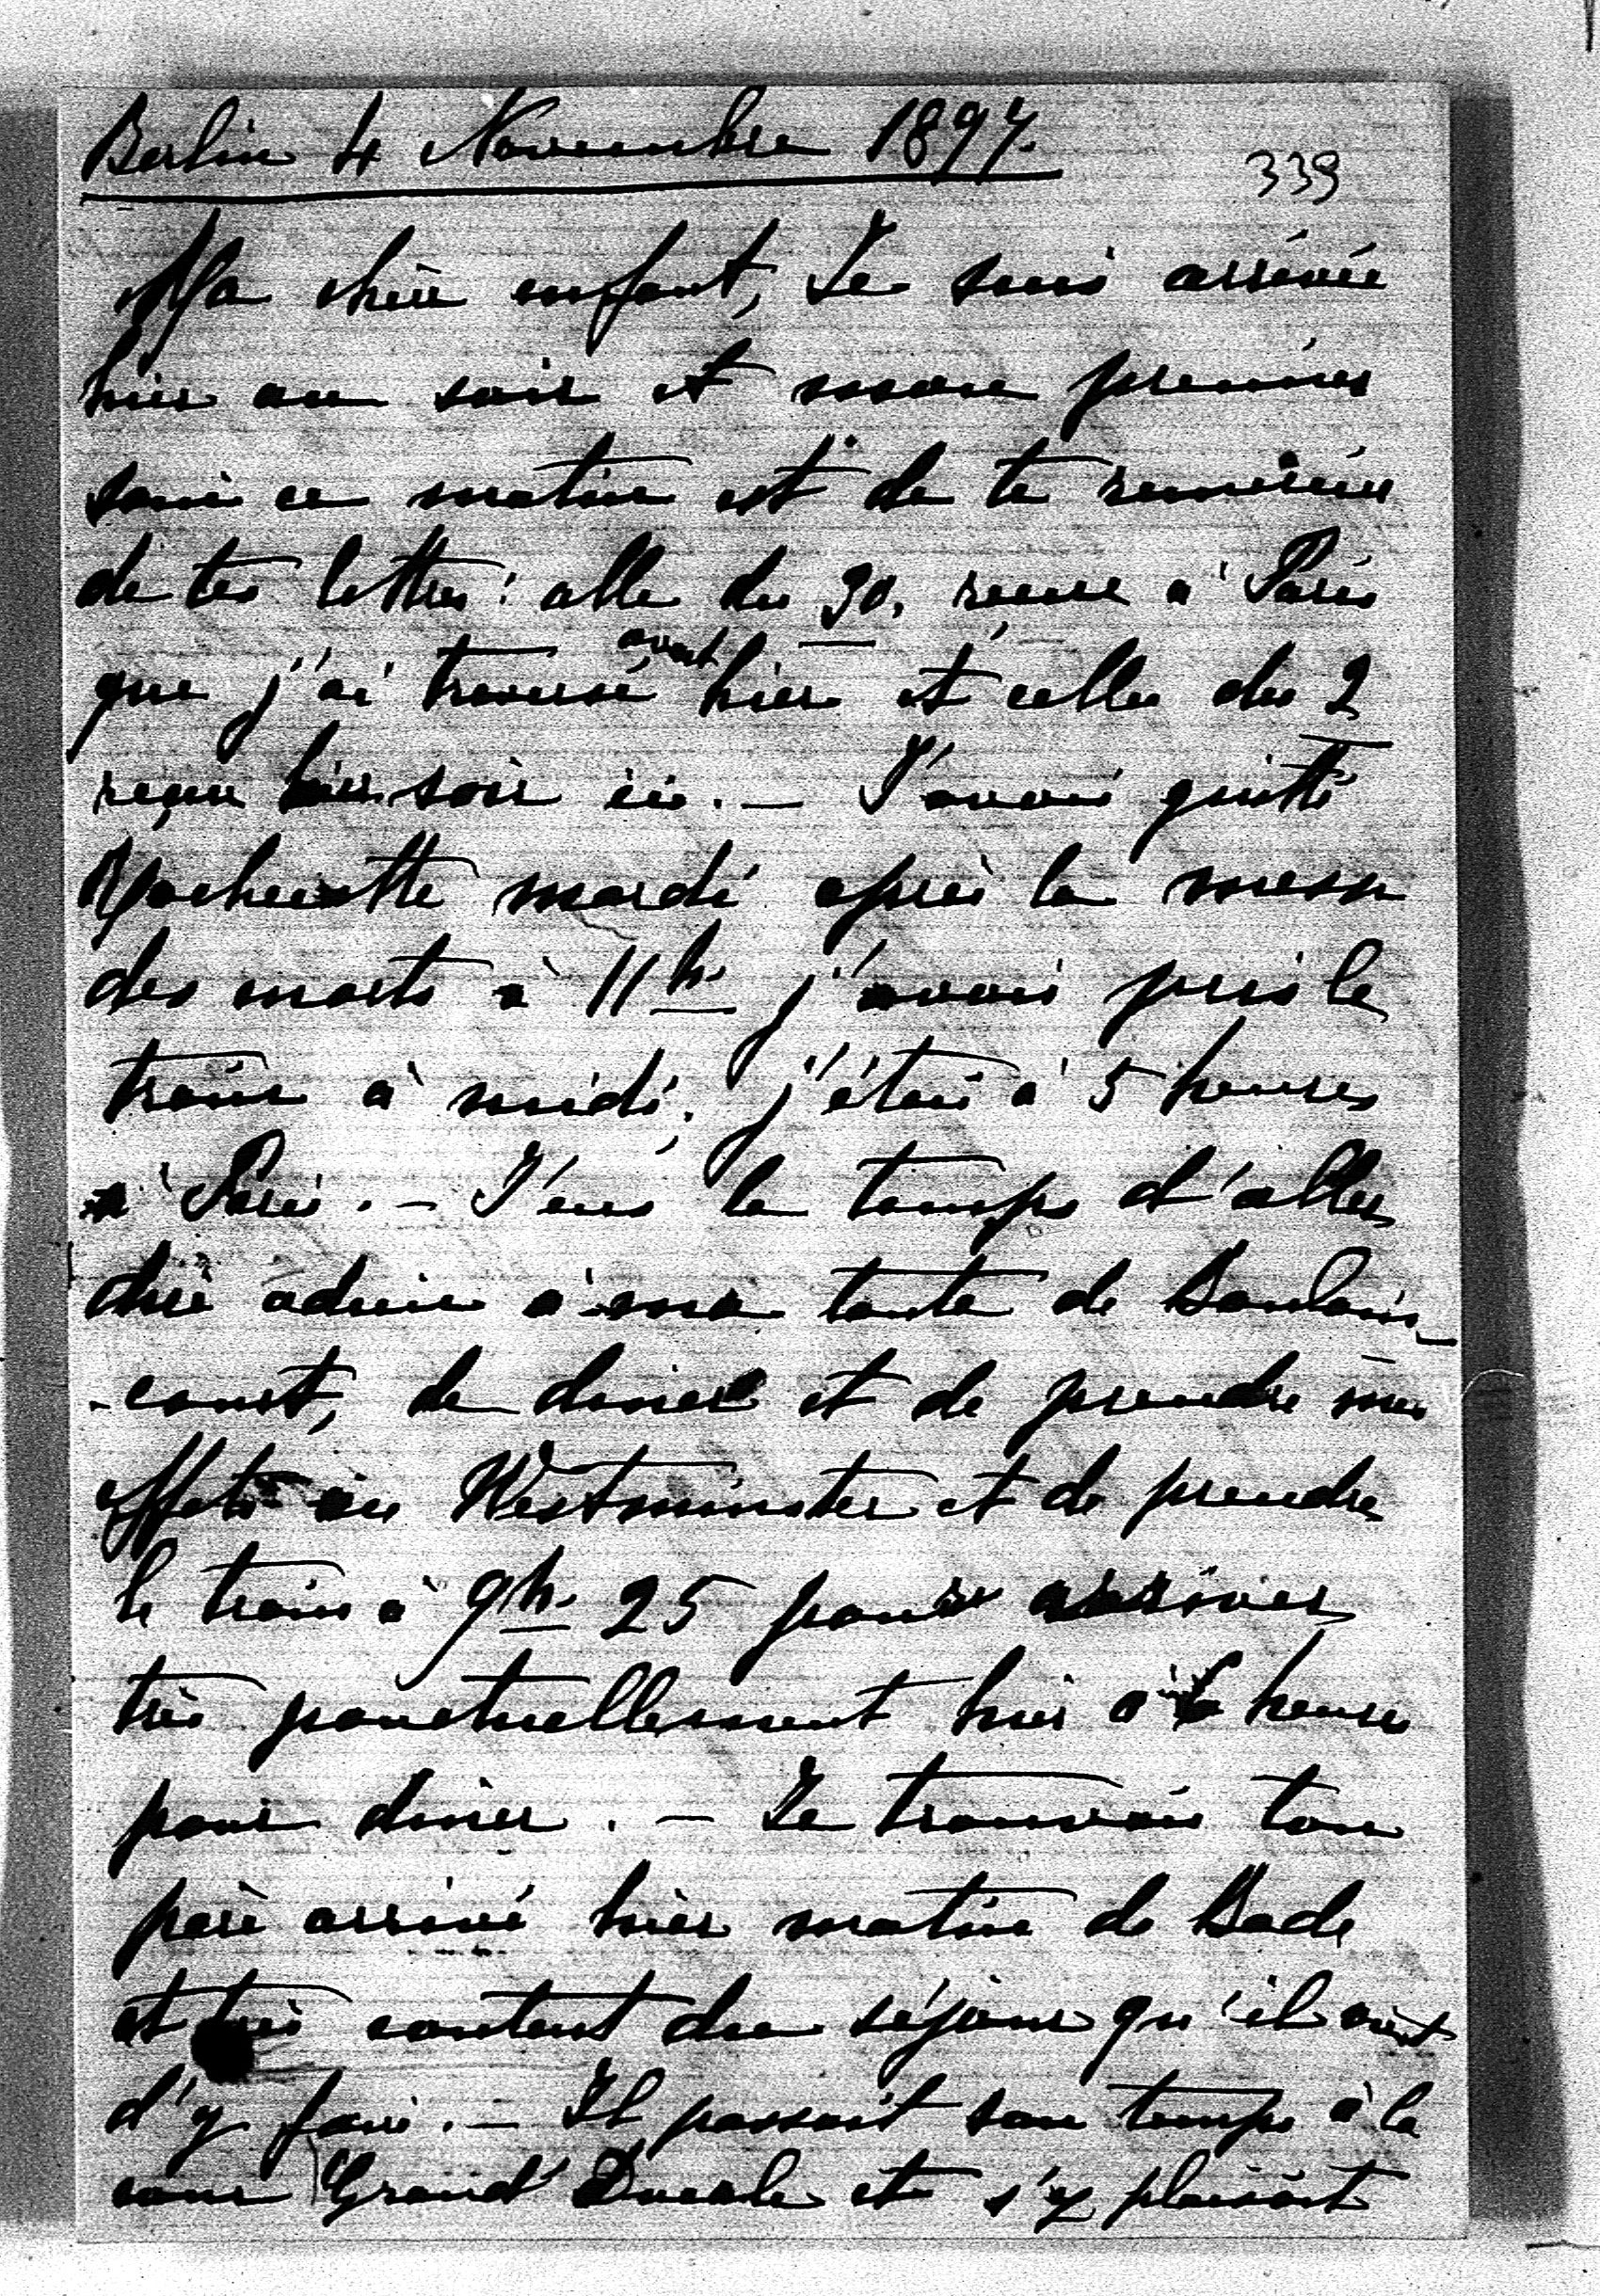 Berlin 4 Novembre 1897.
339
Ma chère enfant, Je suis arrivée
hier au soir et mon premier
soin ce matin est de te remercier
de tes lettres: celle du 30, recue à Paris
que j'ai trouvé avant hier et celle du 2
reçue hier soir ici. — J'avais quitté
mardi après la messe
des morts à 11h. j'avais pris le
train à midi, j'étais à 5 heures
à Paris. — J'eus le temps d'aller
dire adieu à ma tante de Boulain-
-court, de diner et de prendre mes
effets au Westminster et de prendre
le train à 9h. 25 pour arriver
très ponctuellement hier à 6 heures
pour diner. — Je trouvais ton
père arrivé hier matin de Bade
et très content du séjour qu'il vient
d'y faire. — Il passait son temps à la
cour Grand Ducale et s'y plaisait